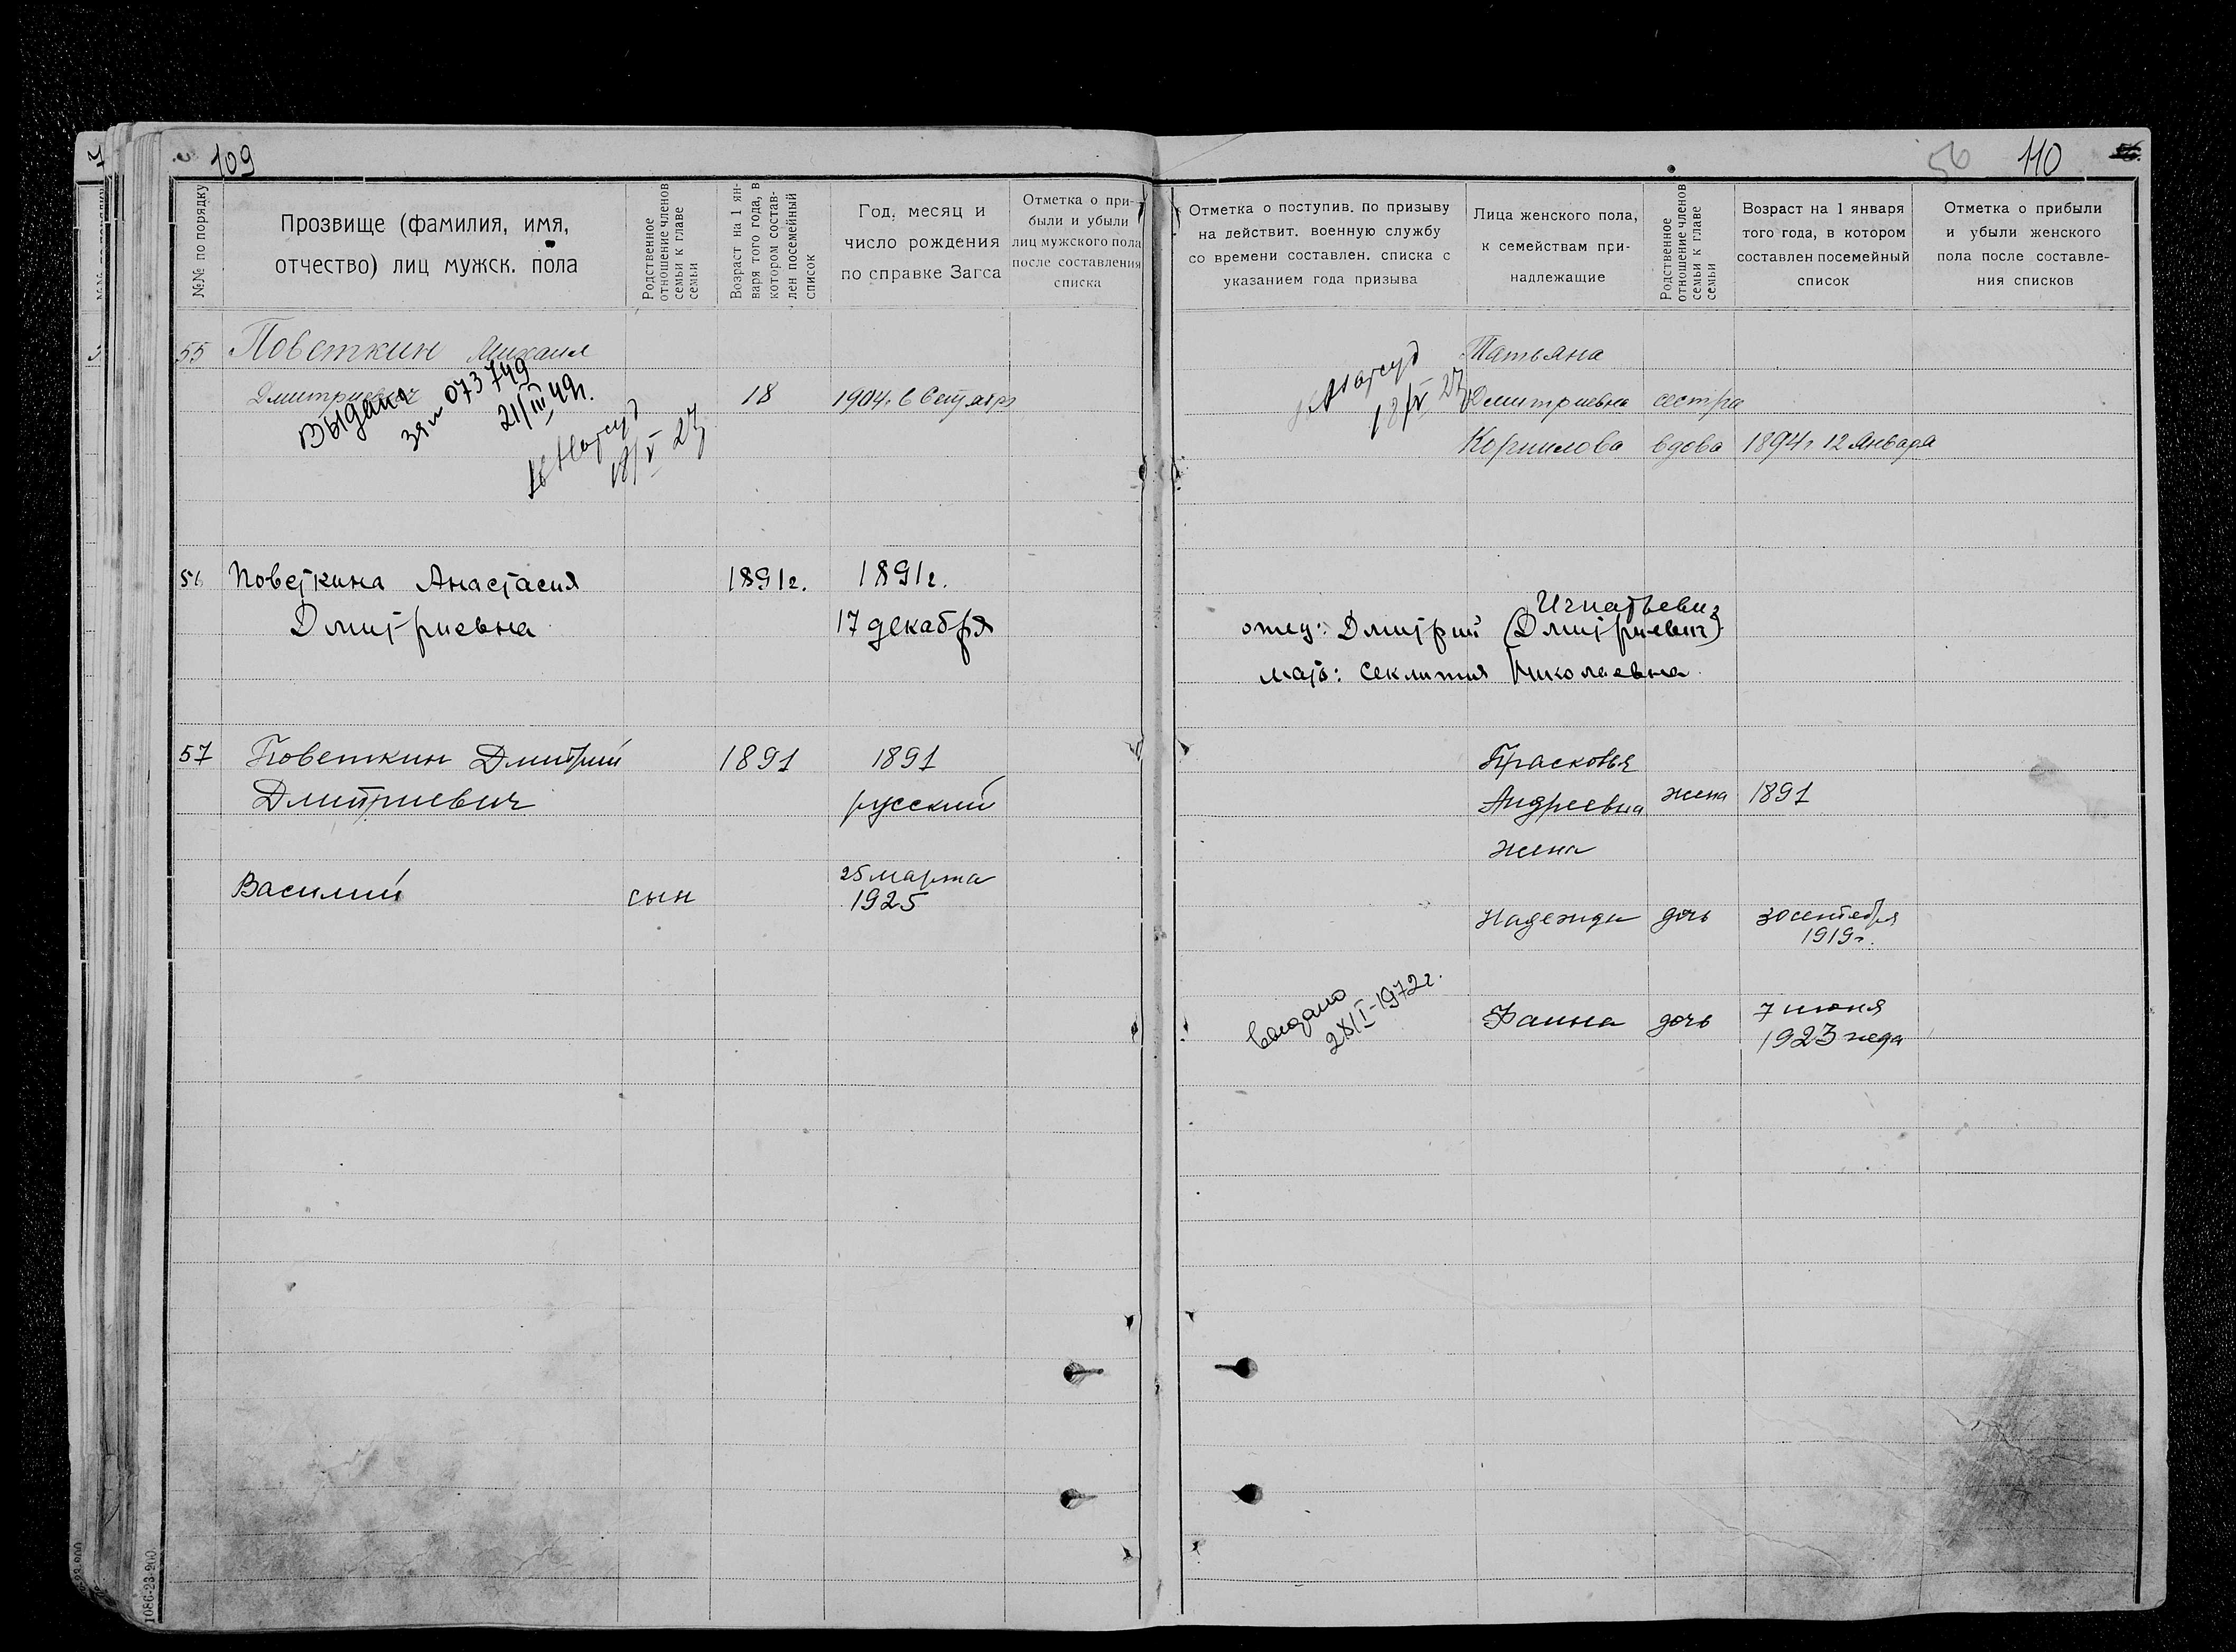 109
56 110 56.
№№ по порядку
Прозвище (фамилия, имя,
отчество) лиц мужск. пола
Родственное
отношение членов
семьи к главе
семьи
Возраст на 1 ян-
варя того года, в
котором состав-
лен посемейный
список
Год, месяц и
число рождения
по справке Загса
Отметка о при-
были и убыли
лиц мужского пола
после составления
списка
Отметка о поступив. по призыву
на действит. военную службу
со времени составлен. списка с
указанием года призыва
Лица женского пола,
к семействам при-
надлежащие
Родственное
отношение членов
семьи к главе
семьи
Возраст на 1 января
того года, в котором
составлен посемейный
список
Отметка о прибыли
и убыли женского
пола после составле-
ния списков
55 Поветкин Михаил
Дмитриевич 18 1904 г.
Выдано
073749
21/III 49г.
18/V 27
Татьяна
Дмитриевна сестра
Корнилова вдова 1894 г 12 Января
18/V 27
56 Поветкина Анастасия 1891г. 1891г.
Дмитриевна 17 декабря
Игнатьевич
отец: Дмитрий (Дмитриевич)
мать: Николаевна
57 Поветкин Дмитрий 1891 1891
Дмитриевич русский
Прасковья
Андреевна жена 1891
жена
Василий сын 25 марта
1925
Надежда дочь 30 сентября
1919г.
Выдано
28/I-1972г.
Фаина дочь 7 июня
1923 года
1086-23-200